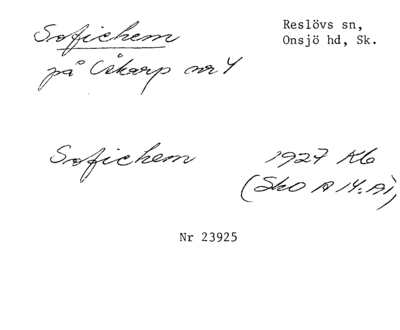 Sofiehem
på Åkarp nr 4
Reslövs sn,
Onsjö hd, Sk.
Sofiehem 1927 Kb
(Sko A 14: Ai)
Nr 23925